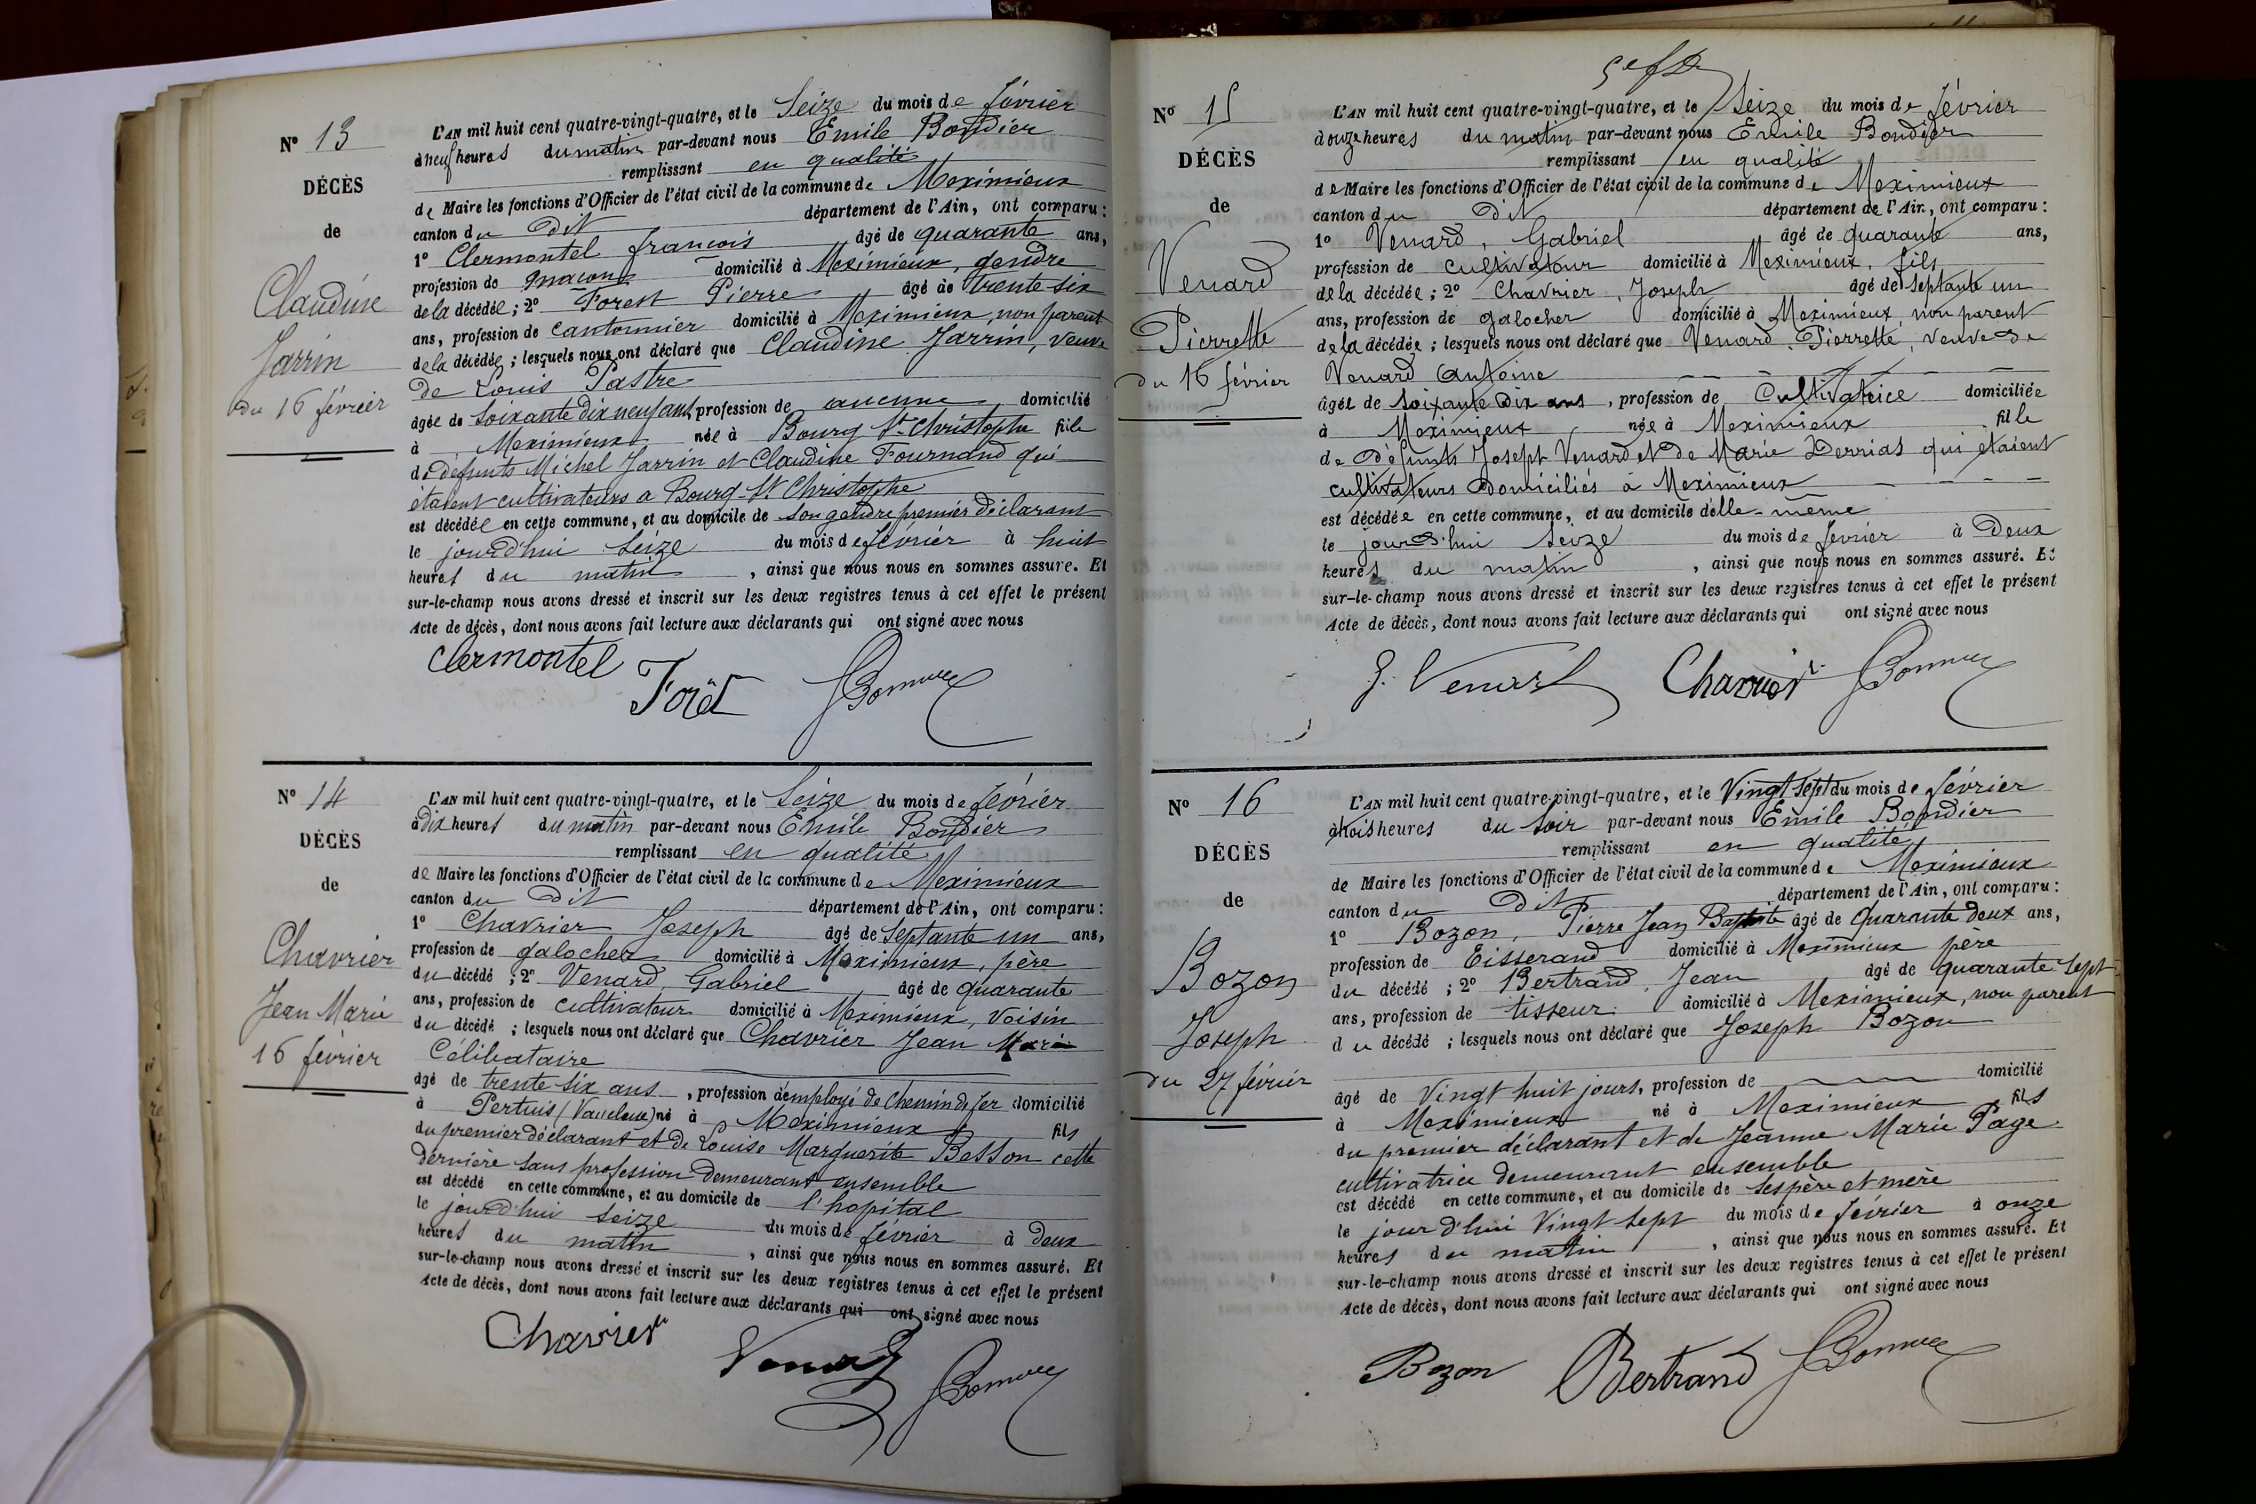 Nº 13
DÉCÈS
de
Claudine
Jarrin
du 16 février
L'AN mil huit cent quatre-vingt-quatre, et le Seize du mois de février
à neuf heures du matin par-devant nous Emile
remplissant en qualité
de Maire les fonctions d'Officier de l'état civil de la commune de Meximieux
canton du dit département de l'Ain, ont comparu :
1º Clermontel françois âgé de quarante ans,
profession de maçon domicilié à Meximieux, gendre
de la décédée ; 2º Forest Pierre âgé de trente six
ans, profession de cantonnier domicilié à Meximieux, non parent
de la décédée ; lesquels nous ont déclaré que Claudine Jarrin, veuve
de Louis Pastre
âgée de soixante dix neuf ans, profession de aucune domicilié
à Meximieux née à Bourg St Christophe fille
de défunts Michel Jarrin et Claudine Fournand qui
étaient cultivateurs a Bourg-St Christophe
est décédée en cette commune, et au domicile de son gendre premier déclarant
le jourd'hui seize du mois de février à huit
heures du matin, ainsi que nous nous en sommes assuré. Et
sur-le-champ nous avons dressé et inscrit sur les deux registres tenus à cet effet le présent
Acte de décès, dont nous avons fait lecture aux déclarants qui ont signé avec nous
Clermontel
Forêt
Nº 14
DÉCÈS
de
Chavrier
Jean Marie
16 février
L'AN mil huit cent quatre-vingt-quatre, et le Seize du mois de février
à dix heures du matin par-devant nous Emile
remplissant en qualité
de Maire les fonctions d'Officier de l'état civil de la commune de Meximieux
canton du dit département de l'Ain, ont comparu :
1º Chavrier Joseph âgé de Septante un ans,
profession de galocher domicilié à Meximieux, père
du décédé ; 2º Venard, Gabriel âgé de quarante
ans, profession de cultivateur domicilié à Meximieux, voisin
du décédé ; lesquels nous ont déclaré que Chavrier Jean Marie
Célibataire
âgé de trente six ans, profession d'employé de chemin de fer domicilié
à Pertuis (Vaucluse) né à Meximieux fils
du premier déclarant et de Louise Marguerite Besson cette
dernière sans profession demeurant ensemble
est décédé en cette commune, et au domicile de l'hopital
le jourd'hui seize du mois de février à deux
heures du matin, ainsi que nous nous en sommes assuré. Et
sur-le-champ nous avons dressé et inscrit sur les deux registres tenus à cet effet le présent
Acte de décès, dont nous avons fait lecture aux déclarants qui ont signé avec nous
Chavrier
Venard
Nº 15
DÉCÈS
de
Venard
Pierrette
du 16 février
L'AN mil huit cent quatre-vingt-quatre, et le Seize du mois de février
à onze heures du matin par-devant nous Emile
remplissant en qualité
de Maire les fonctions d'Officier de l'état civil de la commune de Meximieux
canton du dit département de l'Ain, ont comparu :
1º Venard, Gabriel âgé de quarante ans,
profession de cultivateur domicilié à Meximieux, fils
de la décédée ; 2º Chavrier, Joseph âgé de septante un
ans, profession de galocher domicilié à Meximieux, non parent
de la décédée ; lesquels nous ont déclaré que Venard, Pierrette, veuve de
Venard Antoine
âgée de soixante dix ans, profession de Cultivatrice domiciliée
à Meximieux, née à Meximieux fille
de défunts Joseph Venard et de Marie Derrias qui étaient
cultivateurs domiciliés à Meximieux
est décédée en cette commune, et au domicile d'elle-même
le jourd'hui seize du mois de février à Deux
heures du matin, ainsi que nous nous en sommes assuré. Et
sur-le-champ nous avons dressé et inscrit sur les deux registres tenus à cet effet le présent
Acte de décès, dont nous avons fait lecture aux déclarants qui ont signé avec nous
G. Venard
Chavrier
Nº 16
DÉCÈS
de
Bozon
Joseph
du 27 février
L'AN mil huit cent quatre-vingt-quatre, et le Vingt sept du mois de février
à trois heures du soir par-devant nous Emile
remplissant en qualité
de Maire les fonctions d'Officier de l'état civil de la commune de Meximieux
canton du dit département de l'Ain, ont comparu :
1º Bozon, Pierre Jean Baptiste âgé de Quarante deux ans,
profession de Tisserand domicilié à Meximieux père
du décédé ; 2º Bertrand, Jean âgé de quarante-sept
ans, profession de tisseur domicilié à Meximieux, non parent
du décédé ; lesquels nous ont déclaré que Joseph Bozon
âgé de Vingt huit jours, profession de domicilié
à Meximieux né à Meximieux fils
du premier déclarant et de Jeanne Marie Page
cultivatrice demeurant ensemble
est décédé en cette commune, et au domicile de ses père et mère
le jour d'hui Vingt sept du mois de février à onze
heures du matin, ainsi que nous nous en sommes assuré. Et
sur-le-champ nous avons dressé et inscrit sur les deux registres tenus à cet effet le présent
Acte de décès, dont nous avons fait lecture aux déclarants qui ont signé avec nous
Bozon
Bertrand